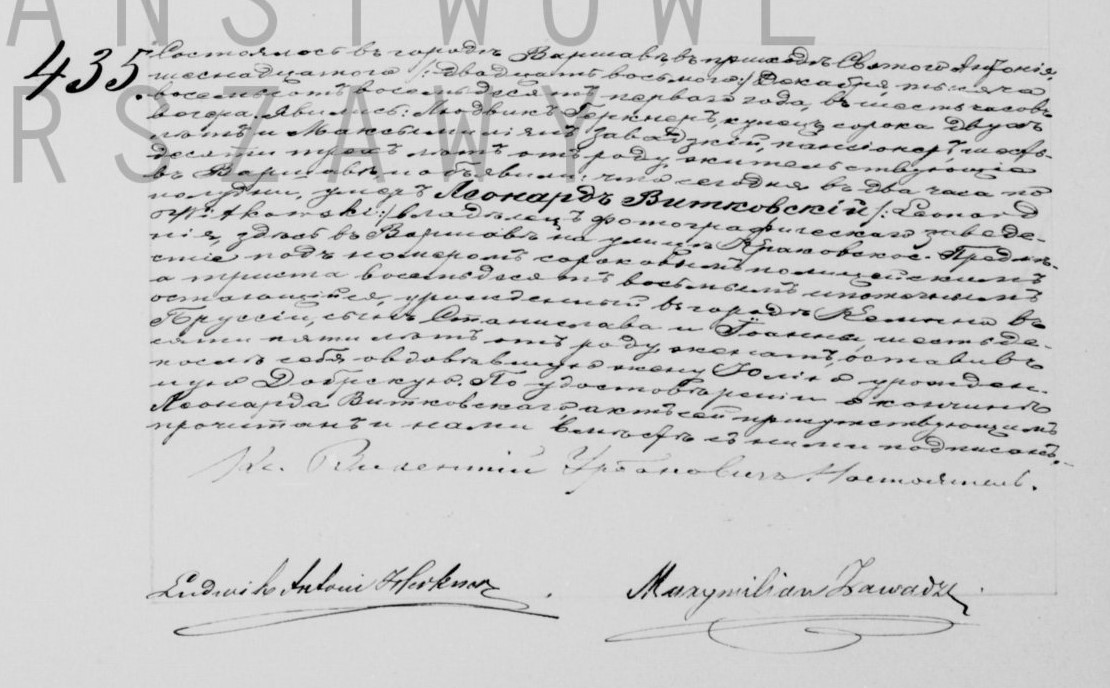 ANSTWOWE
435. Состоялось въ городѣ Варшавѣ въ приходѣ Святого Антонія,
шеснадцатого /: двадцать восьмого :/ Декабря тысяча
RSZAWY
восемьсотъ восемьдесятъ перваго года, въ шесть часовъ
вечера. Явились: Людвикъ Геркнеръ, купецъ, сорока двухъ
лѣтъ и Максымиліянъ Завадзкій, пансіонеръ, шесть-
десяти трехъ лѣтъ отъ роду, жительствующіе
въ Варшавѣ, и объявили: что сегодня въ два часа по
полудни, умеръ Леонардъ Витковскій /: Leonard
Witkowski :/ владѣлецъ фотографическаго заведе-
нія, здѣсь въ Варшавѣ на улицѣ Краковское-Предмѣ-
стіе подъ номеромъ сороковымъ полицейскимъ
а триста восемьдесятъ восьмымъ ипотечнымъ
остающійся, урожденный въ городѣ въ
Пруссіи, сынъ Станислава и Іоанны, шестьде-
сяти пяти лѣтъ отъ роду, женатъ, оставивъ
послѣ себя овдовѣвшую жену Юлію урожден-
ную Добрскую. По удостовѣреніи о кончинѣ
Леонарда Витковскаго, актъ сей присутствующимъ
прочитанъ и нами вмѣстѣ съ ними подписанъ.
Кс. Викентій Урбановичъ Настоятель.
Ludwik Antoni Herkner Maxymilian Zawadz